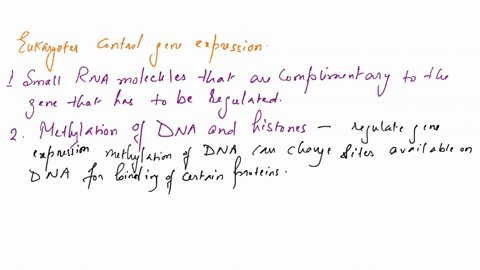 Eukaryotes control gene expression.
1 Small RNA molecules that are complimentary to the
gene that has to be regulated.
2. Methylation of DNA and histones - regulate gene
expression methylation of DNA can change sites available on
DNA for binding of certain proteins.